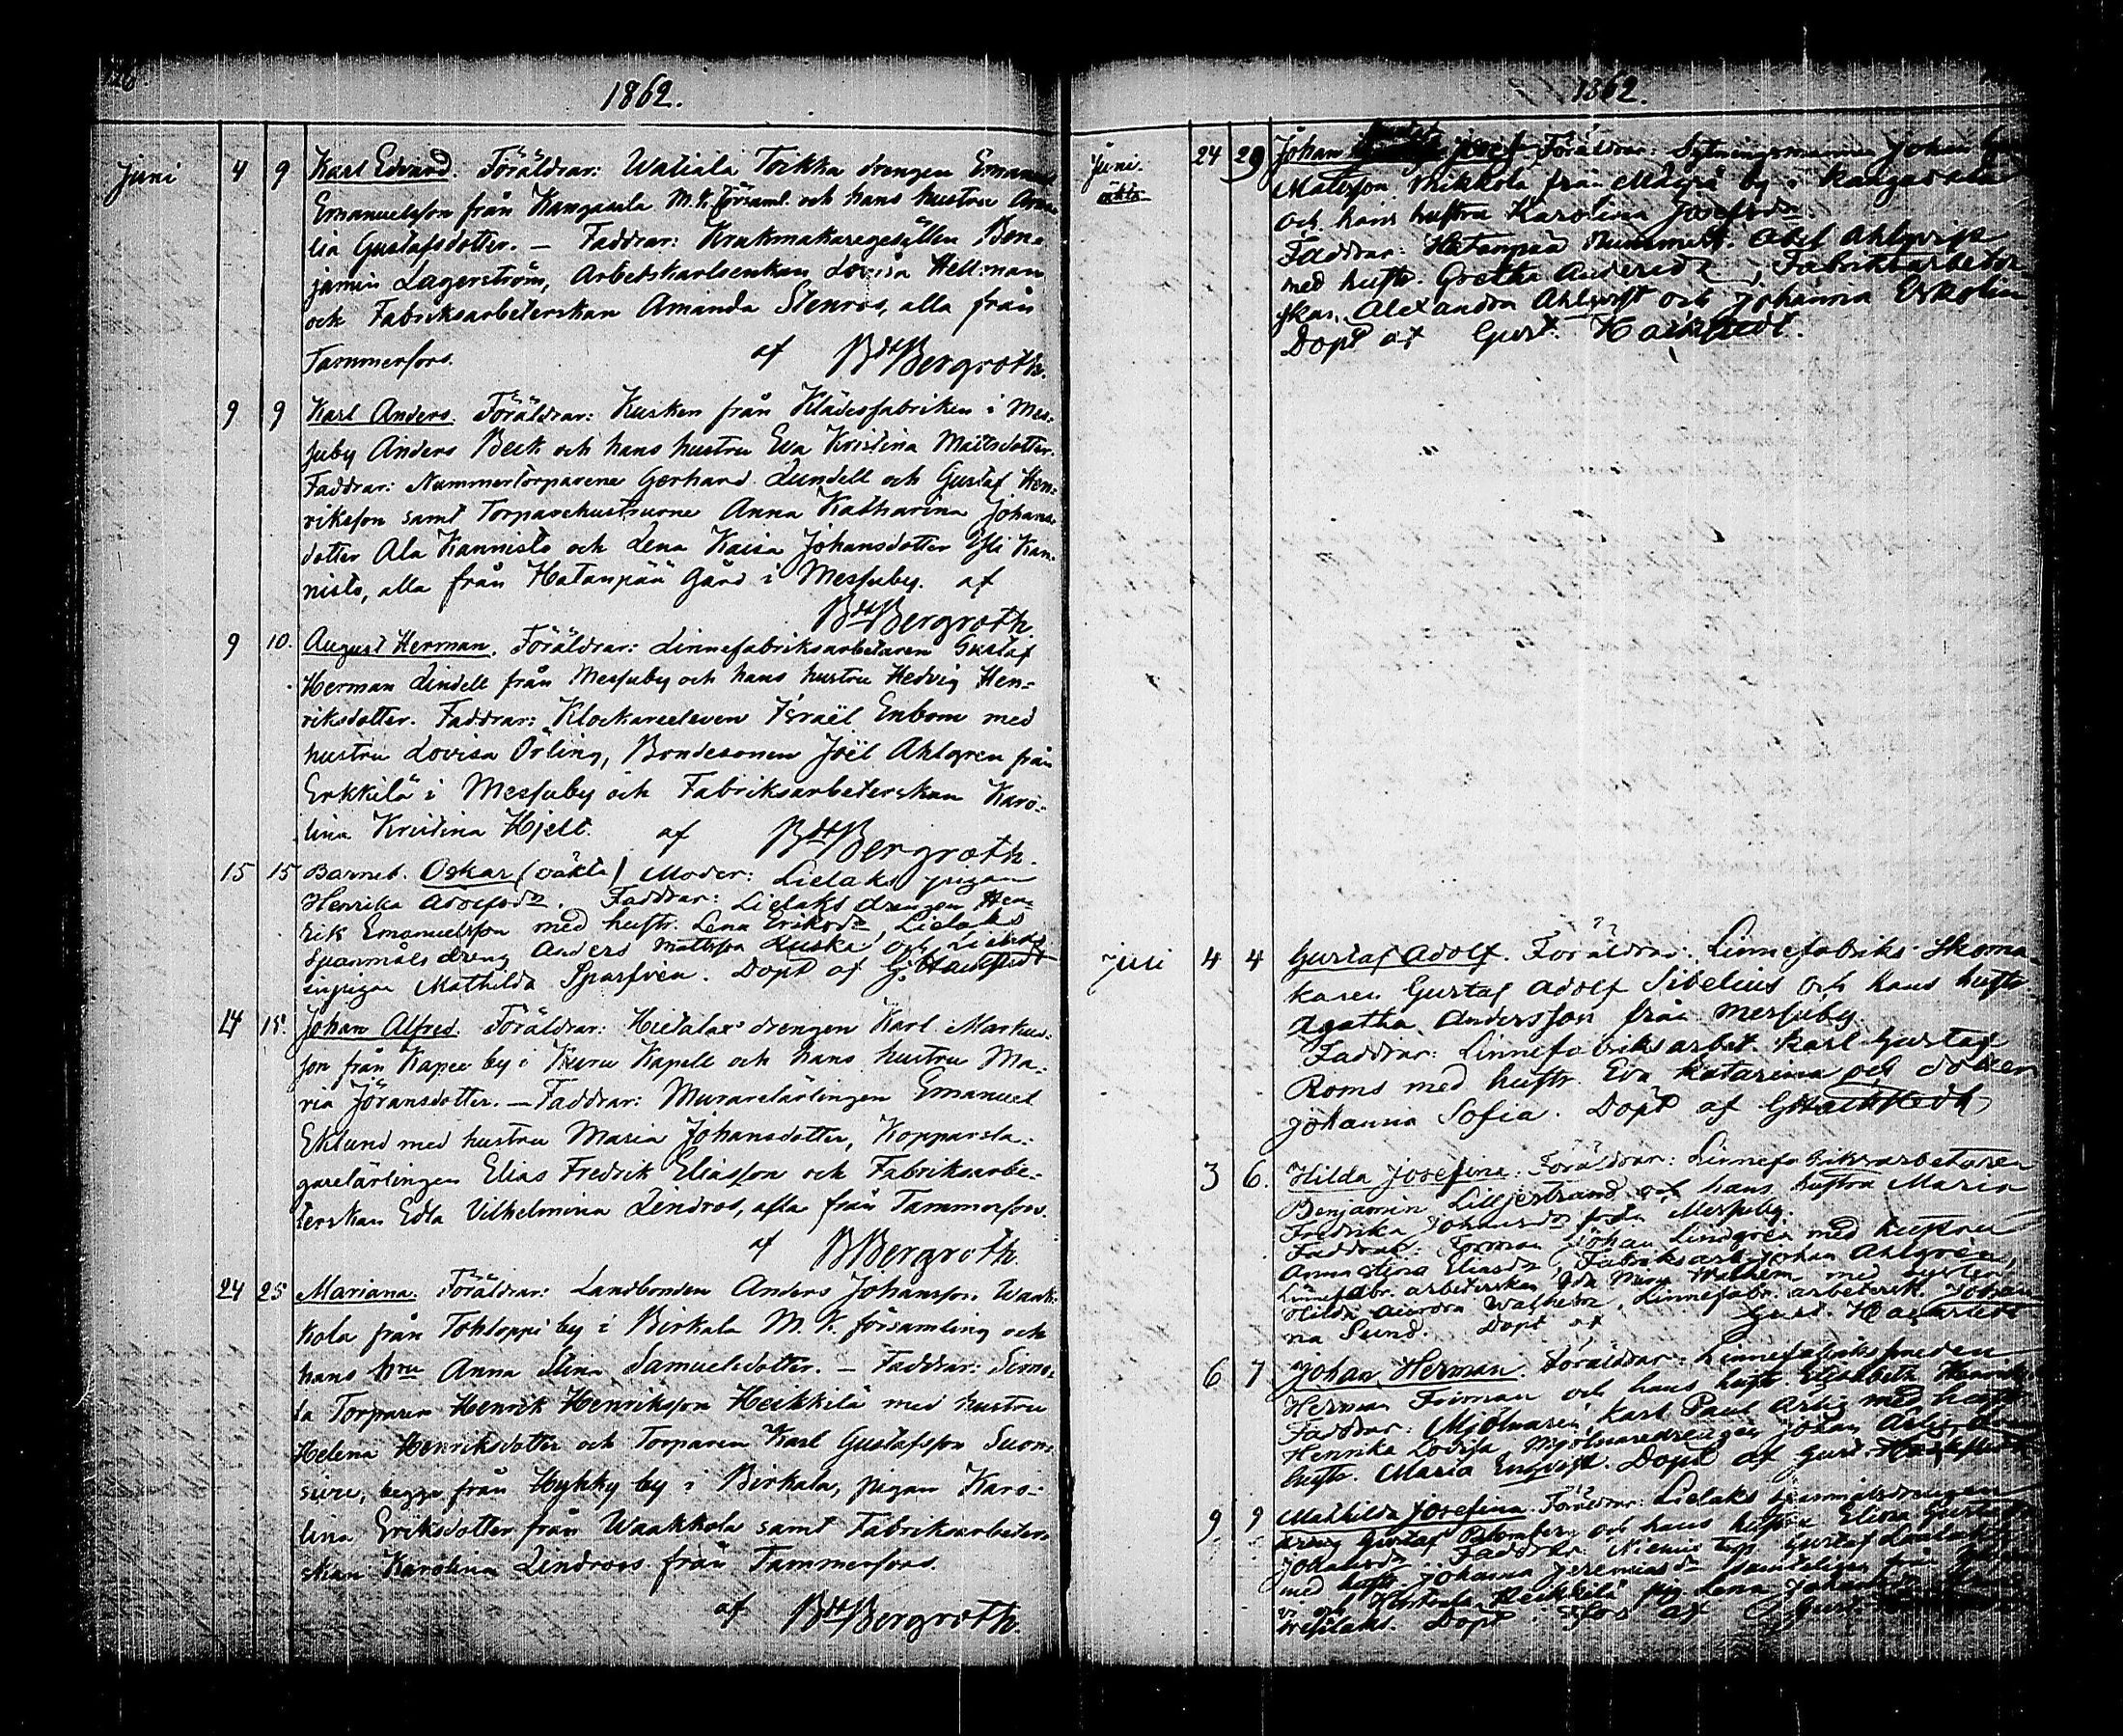 126.
1862.
Juni 4 9 Karl Edvard. Föräldrar: Watiala Toikka drengen Emanuel
Emanuelsson från Kangasala M. K. församl. och hans hustru Ama-
lia Gustafsdotter. — Faddrar: Krukmakaregesällen Ben-
jamin Lagerström, Arbetskarlsenkan Lovisa Hellman
och Fabriksarbeterskan Amanda Stenros, alla från
Tammerfors. af Bdt Bergroth.
9 9 Karl Anders. Föräldrar: Kusken från Klädesfabriken i Mes-
suby Anders Beck och hans hustru Eva Kristina Mattsdotter.
Faddrar: Nummertorparene Gerhard Lundell och Gustaf Hen-
riksson samt Torparehustrurne Anna Katharina Johans-
dotter Ala Kannisto och Lena Kaisa Johansdotter Yli Kan-
nisto, alla från Hatanpää Gård i Messuby. af
Bdt Bergroth.
9 10. August Herman. Föräldrar: Linnefabriksarbetaren Gustaf
Herman Lindell från Messuby och hans hustru Hedvig Hen-
riksdotter. Faddrar: Klockareeleven Israël Enbom med
hustru Lovisa Örling, Bondesonen Joël Ahlgren från
Erkkilä i Messuby och Fabriksarbeterskan Karo-
lina Kristina Hjelt. af Bdt Bergroth.
15 15 Barnet. Oskar (oäkta) Moder: Lielaks pigan
Henrika Adolfsdr. Faddrar: Lielaks drengen Hen-
rik Emanuelsson med hustr. Lena Eriksdr, Lielaks
Spanmåls dreng Anders Mattsson Kuska och Lielaks
inpigan Mathilda Sparfven. Döpt af G. Hackstedt
14 15. Johan Alfred. Föräldrar: Hietalax drengen Karl Markus-
son från Kapee by i Kuru Kapell och hans hustru Ma-
ria Jöransdotter. — Faddrar: Murarelärlingen Emanuel
Eklund med hustru Maria Johansdotter, Kopparsla-
garelärlingen Elias Fredrik Eliasson och Fabriksarbe-
terskan Edla Vilhelmina Lindros, alla från Tammerfors.
af BBergroth.
24 25 Mariana. Föräldrar: Landbonden Anders Johansson Waak-
kola från Tohloppi by i Birkala M. K. församling och
hans hru Anna Stina Samuelsdotter. — Faddrar: Simo-
la Torparen Henrik Henriksson Heikkilä med hustru
Helena Henriksdotter och Torparen Karl Gustafsson Suon-
sivu, begge från Hyhky by i Birkala, pigan Karo-
lina Eriksdotter från Waakkola samt Fabriksarbeter-
skan Karolina Lindroos från Tammerfors.
af Bdt Bergroth.
1862.
Juni. 24 29 Johan Josef Föräldrar: Sytningsmannen Johan
äkta Matsson Mikkola från by i Kangasala
och hans hustru Karolina Josefsdr.
Faddrar: Hatanpää Abel Ahlqvist
med hustr. Gretha Andersdr, Fabriksarbeter-
skan Alexandra Ahlqvist och Johanna Eskolin
Döpt af Gust. Hackstedt.
Juli 4 4 Gustaf Adolf. Föräldrar: Linnefabriks Skoma-
karen Gustaf Adolf Sibelius och hans hustr.
Agatha Andersson från Messuby.
Faddrar: Linnefabriksarbet. Karl Gustaf
Roms med hustr. Eva Katarina och dotter
Johanna Sofia. Döpt af GHackstedt
3 6. Hilda Josefina. Föräldrar: Linnefabriksarbetaren
Benjamin Liljestrand och hans hustru Maria
Fredrika Johansdr från Messuby.
Faddrar: Forman Johan Lindgren med hustru
Anna Stina Eliasdr, Fabriksarb. Johan Ahlgren,
Linnefabr. arbeterskan Ida Maria Walhelm med syster
Hilda Aurora Walhelm, Linnefabr. arbetersk. Johan-
na Sund. Döpt af Gust. Hackstedt
6 7 Johan Herman. Föräldrar: Linnefabrikssmeden
Herman Forman och hans hustr. Elisabeth
Faddrar: Mjölnaren Karl Paul Arlig med hustr
Henrika Lovisa, Mjölnaredrengen Johan Arlig,
hustr. Maria Enqvist. Döpt af Gust. Hackstedt
9 9 Mathilda Josefina. Föräldrar: Lielaks spanmålsdrengen
Gustaf Blomberg och hans hustru Elina
Johansdr. Faddrar: Niemis Gustaf
med hustr. Johanna Jeremiasdr
och Heikkilä Lena
Döpt af Gust.